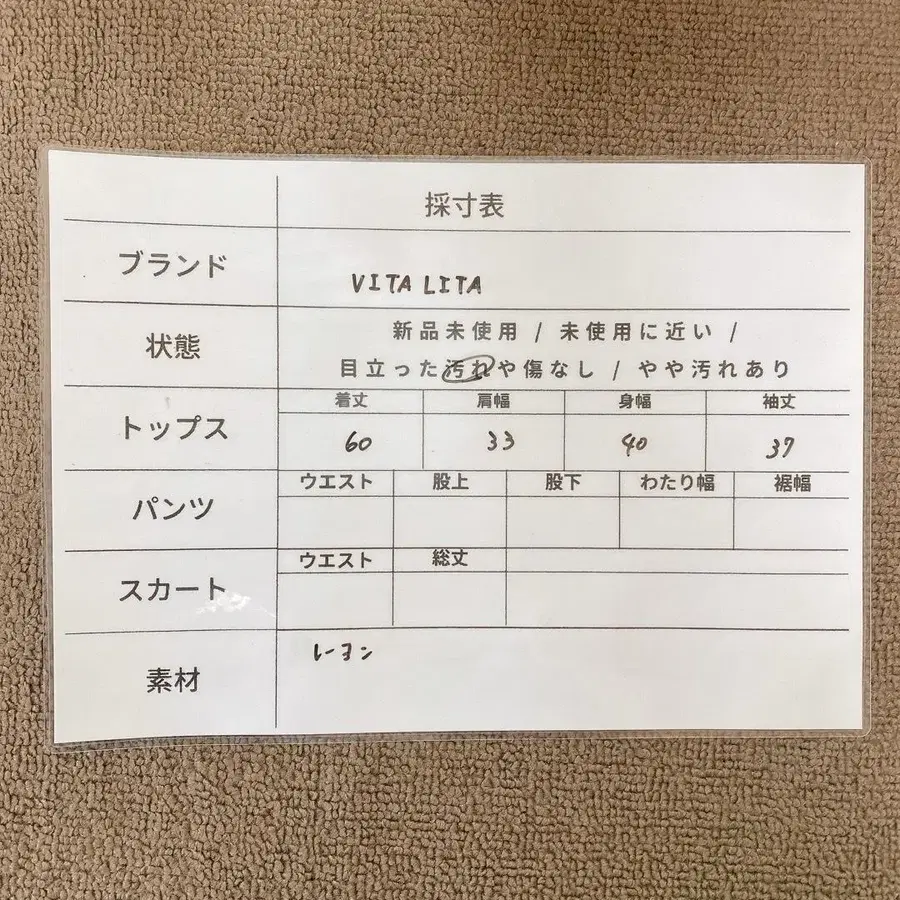 採寸表
ブランド
VITA LITA
状態
新品未使用 / 未使用に近い /
目立った汚れや傷なし / やや汚れあり
トップス
着丈 肩幅 身幅 袖丈
60 33 40 37
パンツ
ウエスト 股上 股下 わたり幅 裾幅
スカート
ウエスト 総丈
素材
レーヨン